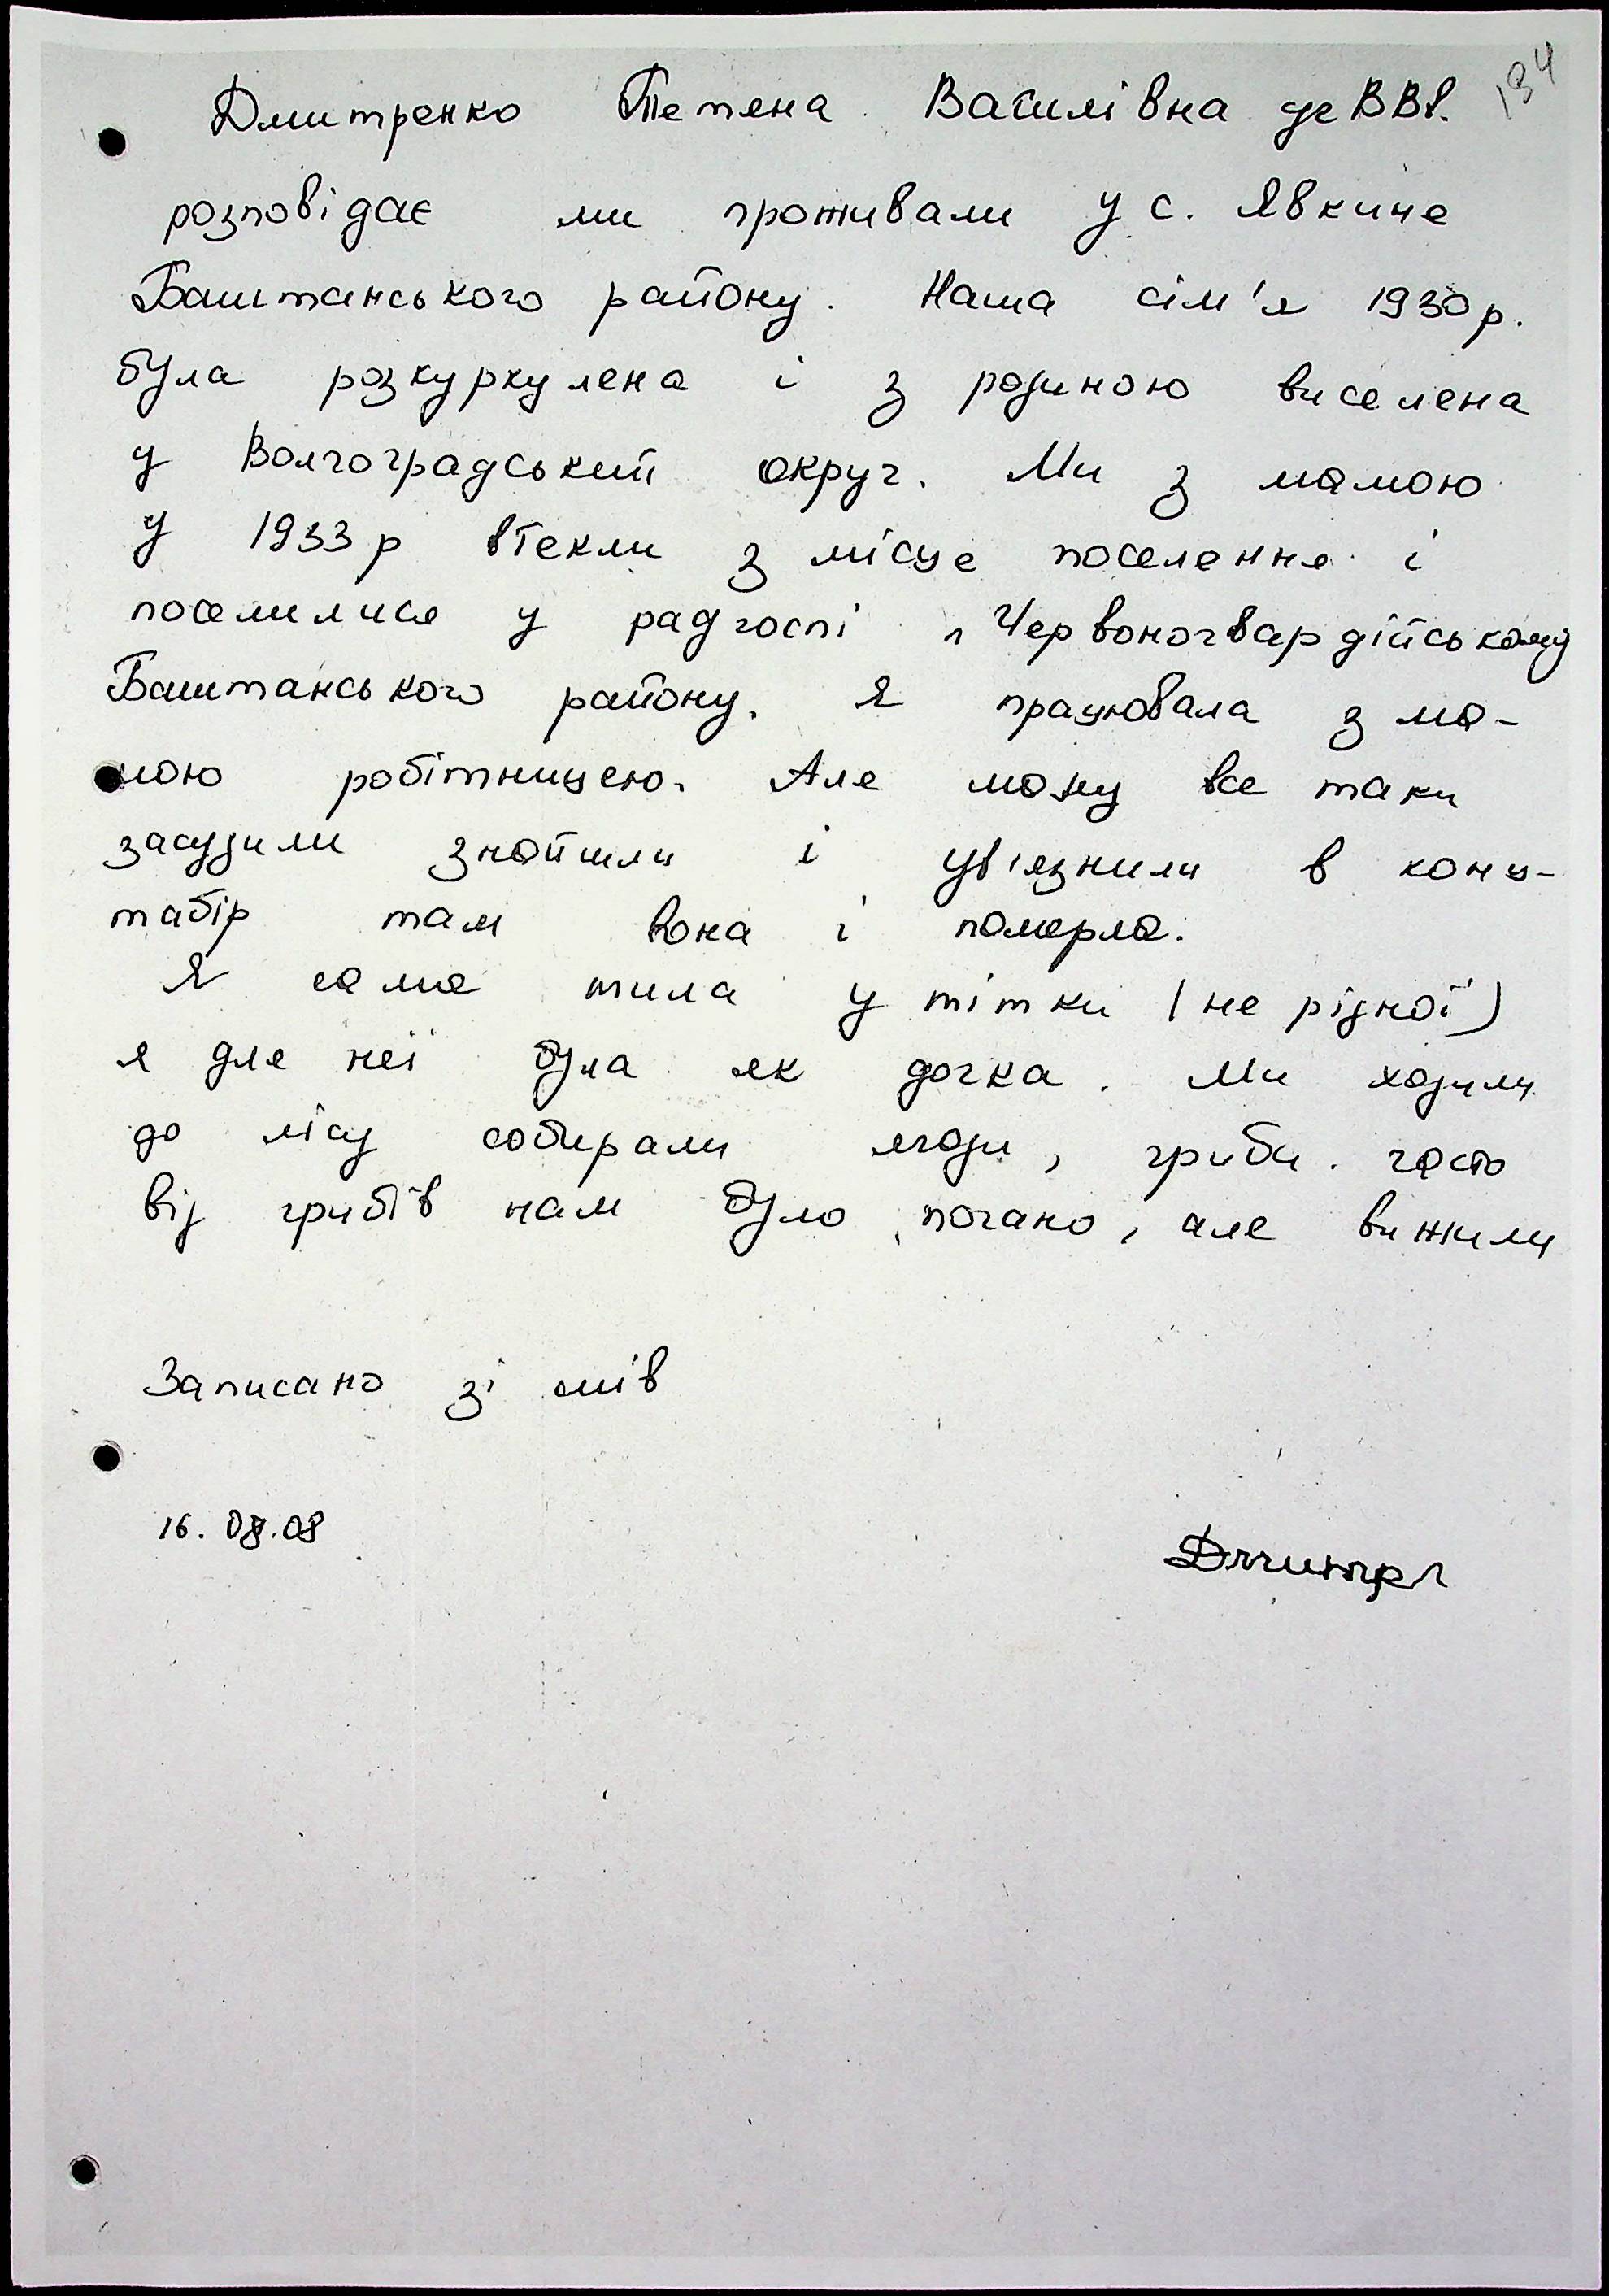 194
Дмитренко Тетяна Василівна
розповідає ми проживали у с. Явкине
Баштанського району. Наша сім'я 1930 р.
була розкуркулена і з родиною виселена
у Волгоградський округ. Ми з мамою
у 1933 р втекли з місця поселення і
поселилися у радгоспі „Червоногвардійському
Баштанського району. Я працювала з ма-
мою робітницею. Але маму все таки
засудили знайшли і ув'язнили в конц-
табір там вона і померла.
Я сама жила у тітки (не рідної)
я для неї була як дочка. Ми ходили
до лісу собирали ягоди, гриби. часто
від грибів нам було погано, але вижили
Записано зі слів
16. 08.08